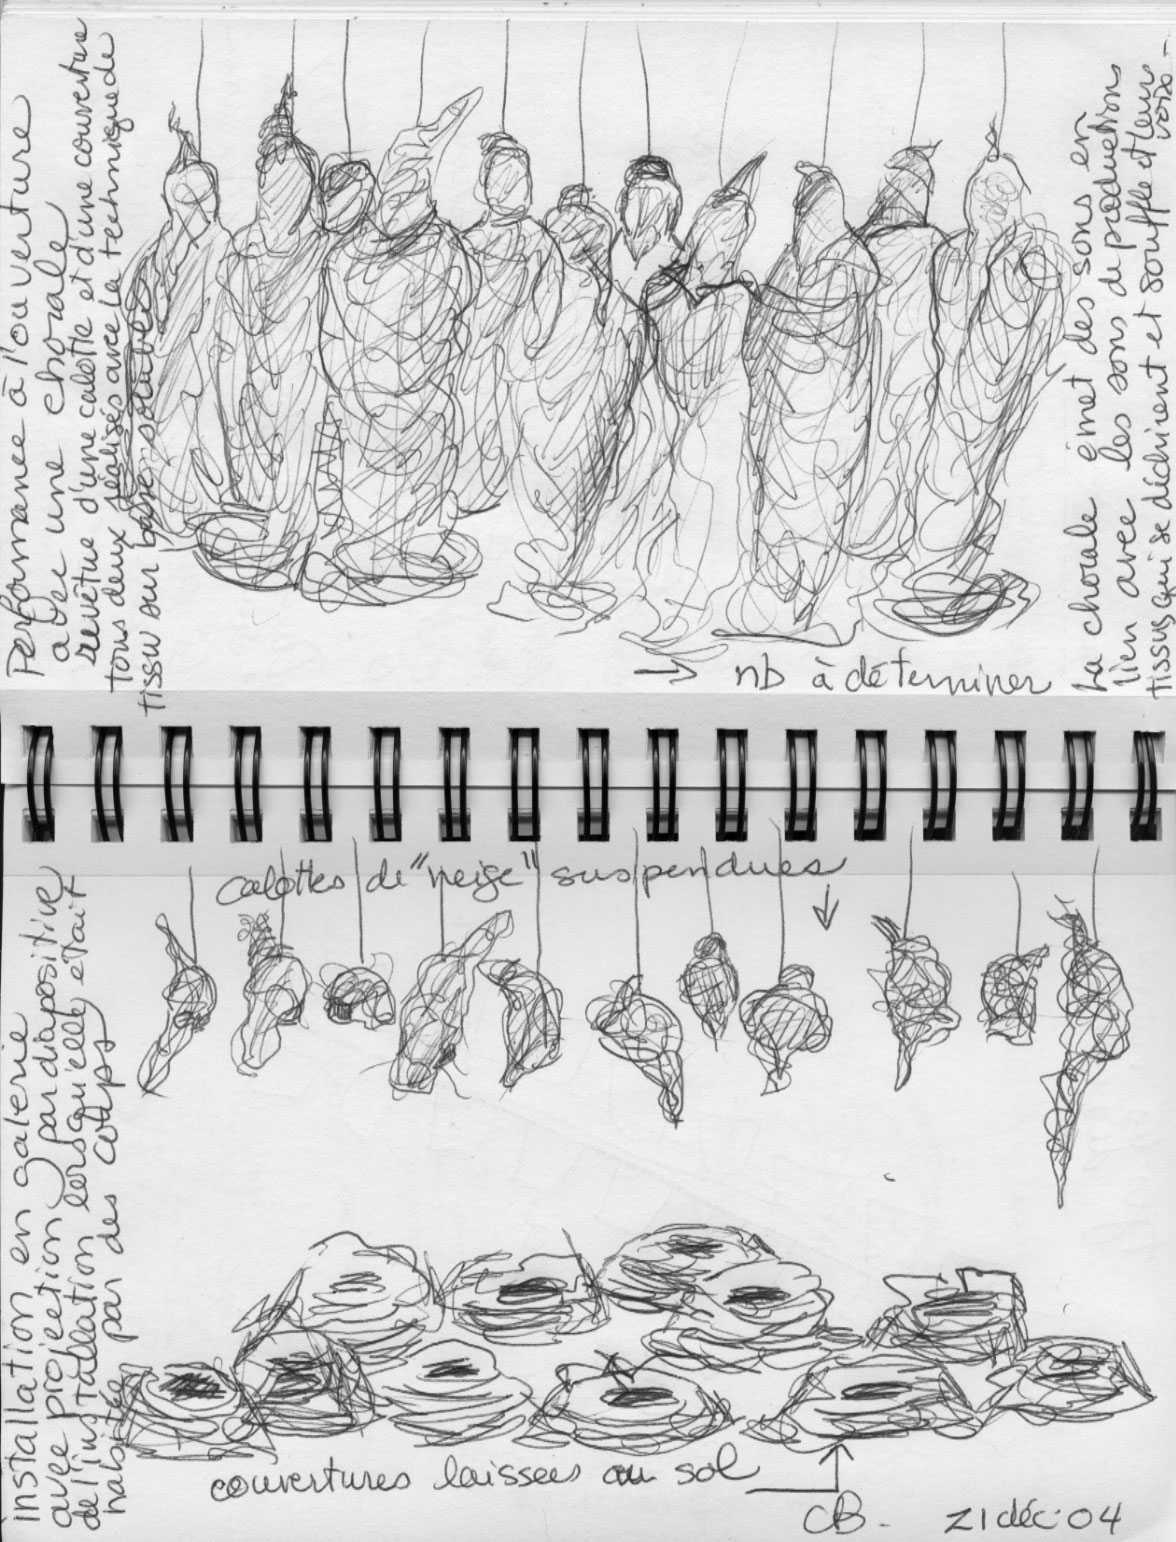 Performance à l'ouverture
avec une chorale
revêtue d'une calotte et d'une couverture
tous deux réalisés avec la technique de
tissu sur base soluble
La chorale émet des sons en
lien avec les sons de production
tissus qui se déchirent et souffle d'leurs
voix –
→ nb à déterminer
calottes de "neige" suspendues
installation en galerie
avec projection par diapositive
de l'installation lorsqu'elle était
habitée par des corps
couvertures laissées au sol
CB. 21 déc. 04